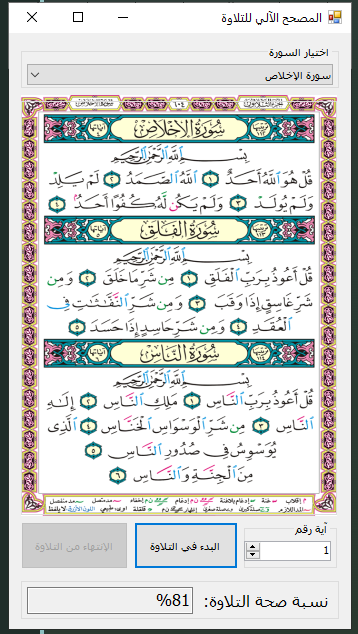 المصحح الآلي للتلاوة
اختيار السورة
سورة الإخلاص
٦٠٤
سُورَةُ الإِخْلَاصِ
بِسْمِ اللَّهِ الرَّحْمَٰنِ الرَّحِيمِ
قُلْ هُوَ اللَّهُ أَحَدٌ ١ اللَّهُ الصَّمَدُ ٢ لَمْ يَلِدْ
وَلَمْ يُولَدْ ٣ وَلَمْ يَكُن لَّهُ كُفُوًا أَحَدٌ ٤
سُورَةُ الفَلَقِ
بِسْمِ اللَّهِ الرَّحْمَٰنِ الرَّحِيمِ
قُلْ أَعُوذُ بِرَبِّ الْفَلَقِ ١ مِن شَرِّ مَا خَلَقَ ٢ وَمِن
شَرِّ غَاسِقٍ إِذَا وَقَبَ ٣ وَمِن شَرِّ النَّفَّاثَاتِ فِي
الْعُقَدِ ٤ وَمِن شَرِّ حَاسِدٍ إِذَا حَسَدَ ٥
سُورَةُ النَّاسِ
بِسْمِ اللَّهِ الرَّحْمَٰنِ الرَّحِيمِ
قُلْ أَعُوذُ بِرَبِّ النَّاسِ ١ مَلِكِ النَّاسِ ٢ إِلَٰهِ
النَّاسِ ٣ مِن شَرِّ الْوَسْوَاسِ الْخَنَّاسِ ٤ الَّذِي
يُوَسْوِسُ فِي صُدُورِ النَّاسِ ٥
مِنَ الْجِنَّةِ وَالنَّاسِ ٦
آية رقم
1
البدء في التلاوة
الإنتهاء من التلاوة
نسبة صحة التلاوة:
%81